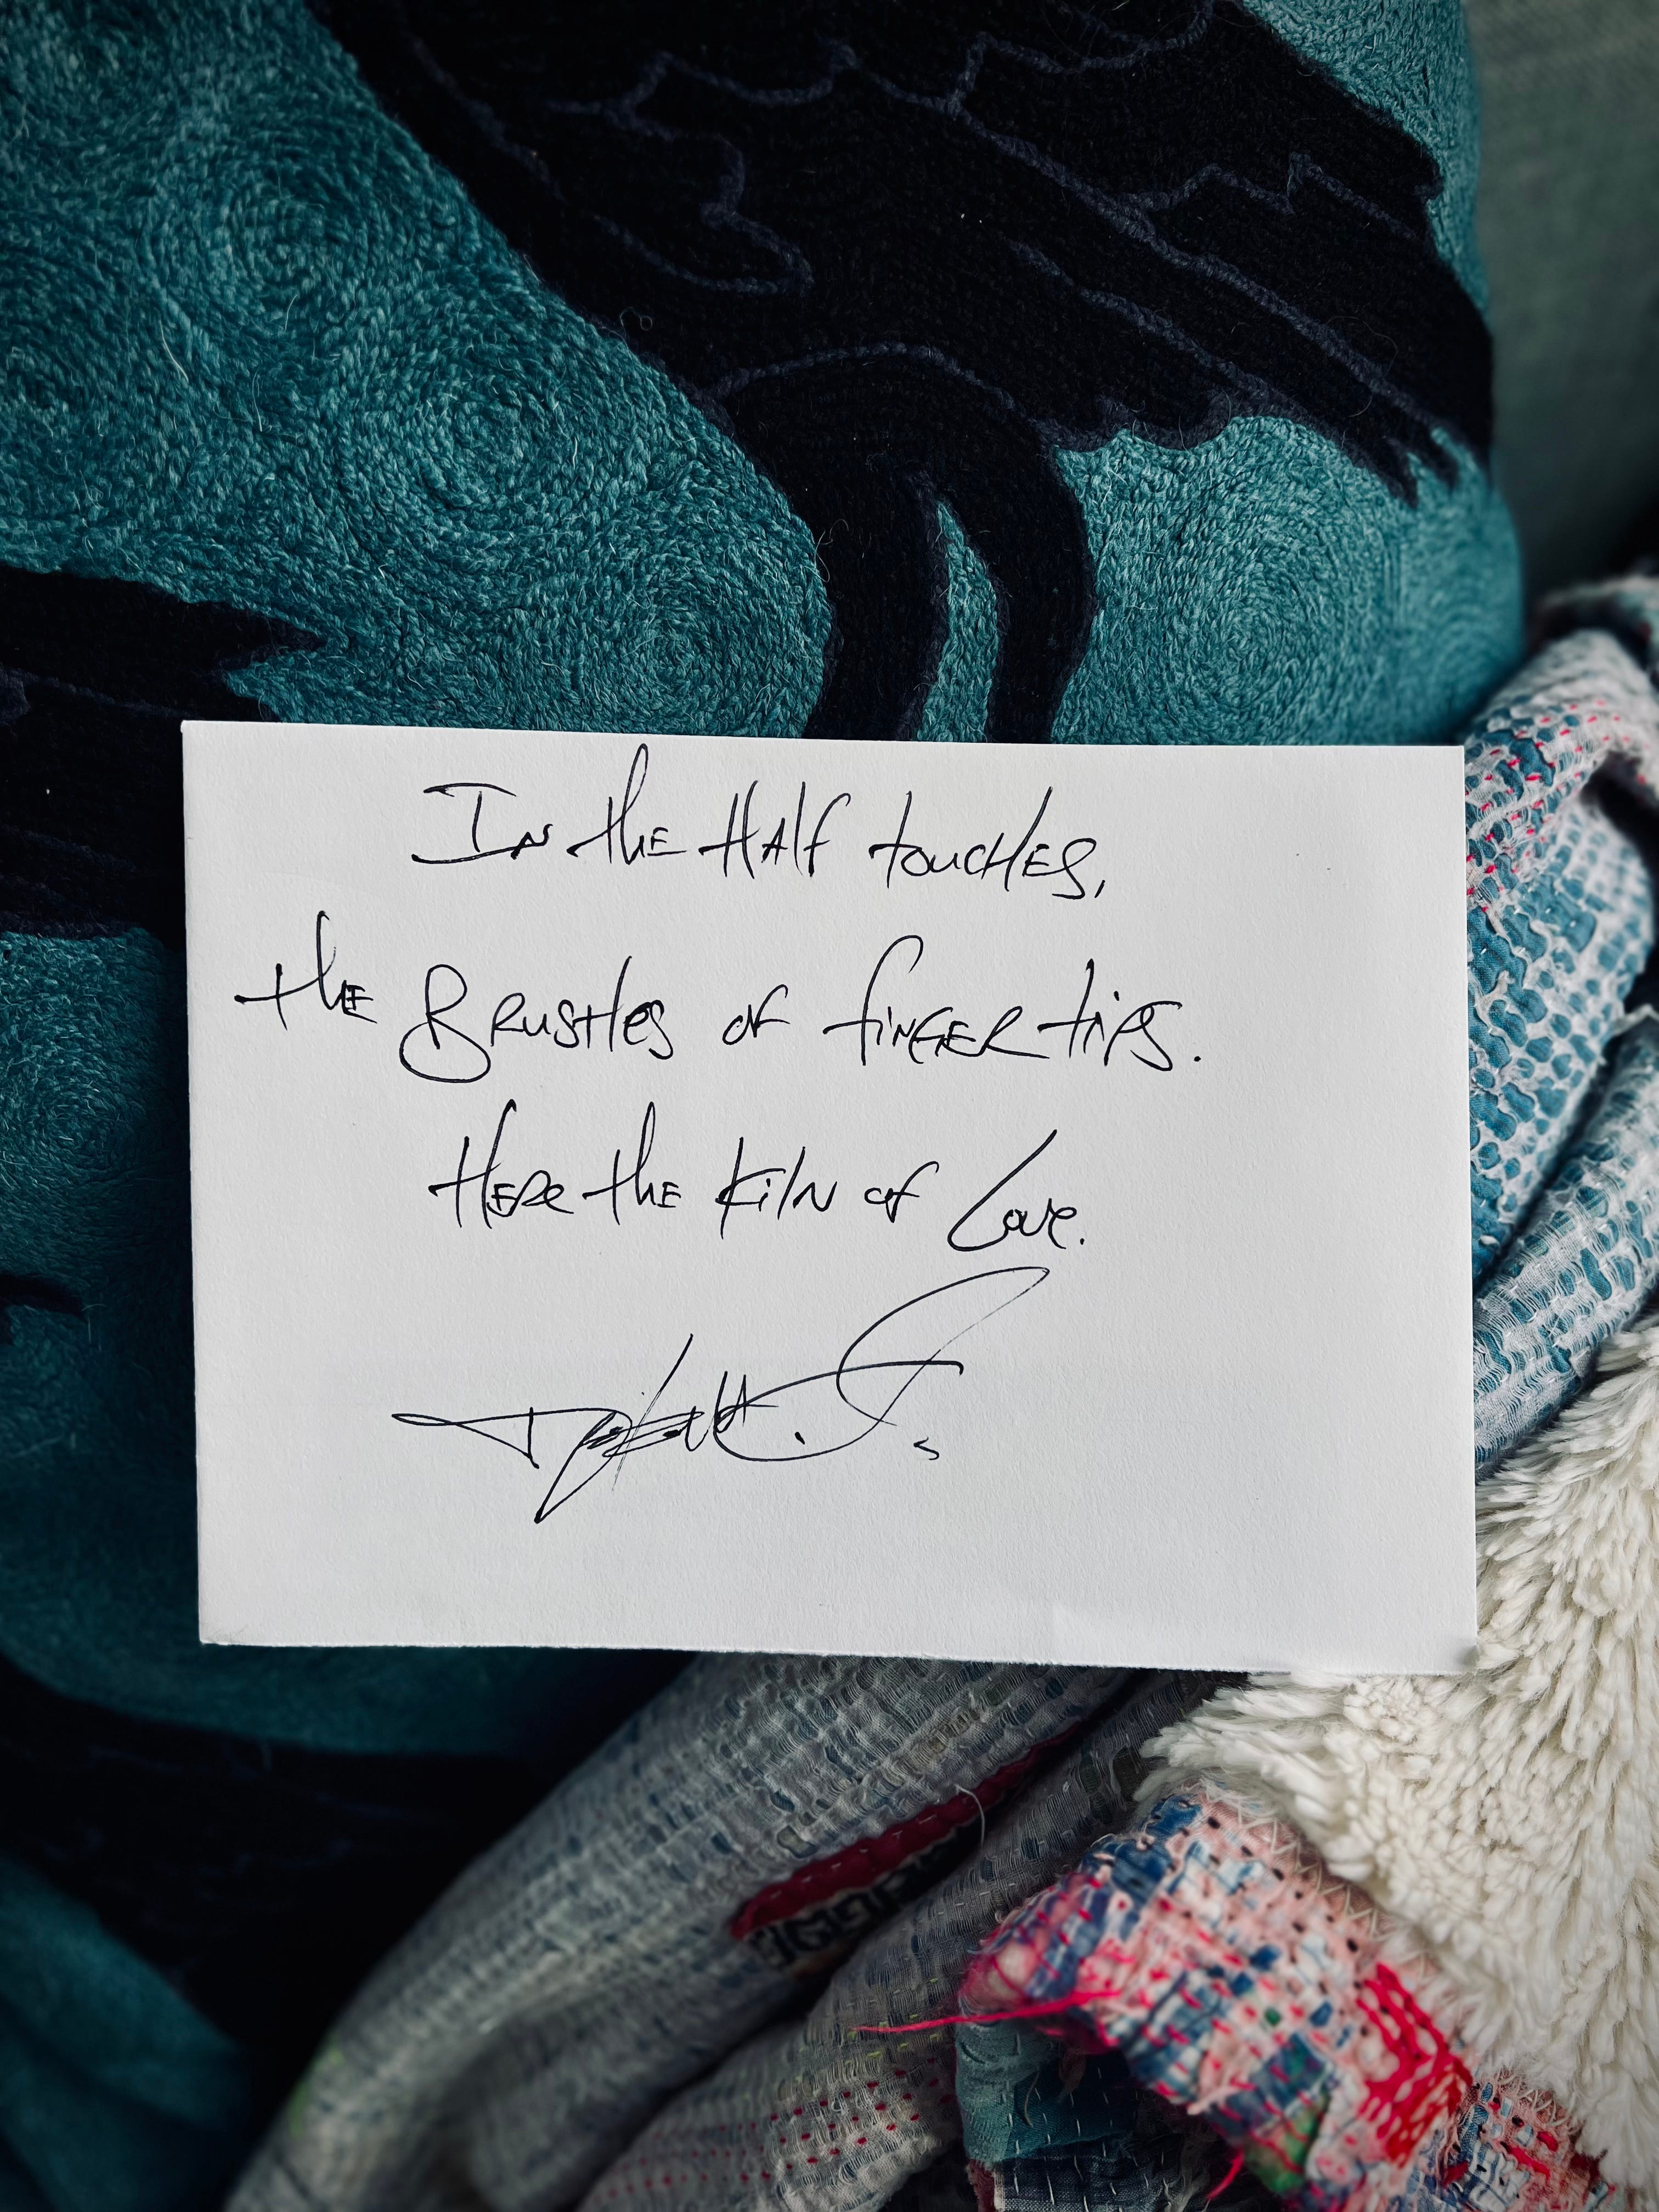 In the Half touches,
the Brushes of finger tips.
Here the Kiln of Love.